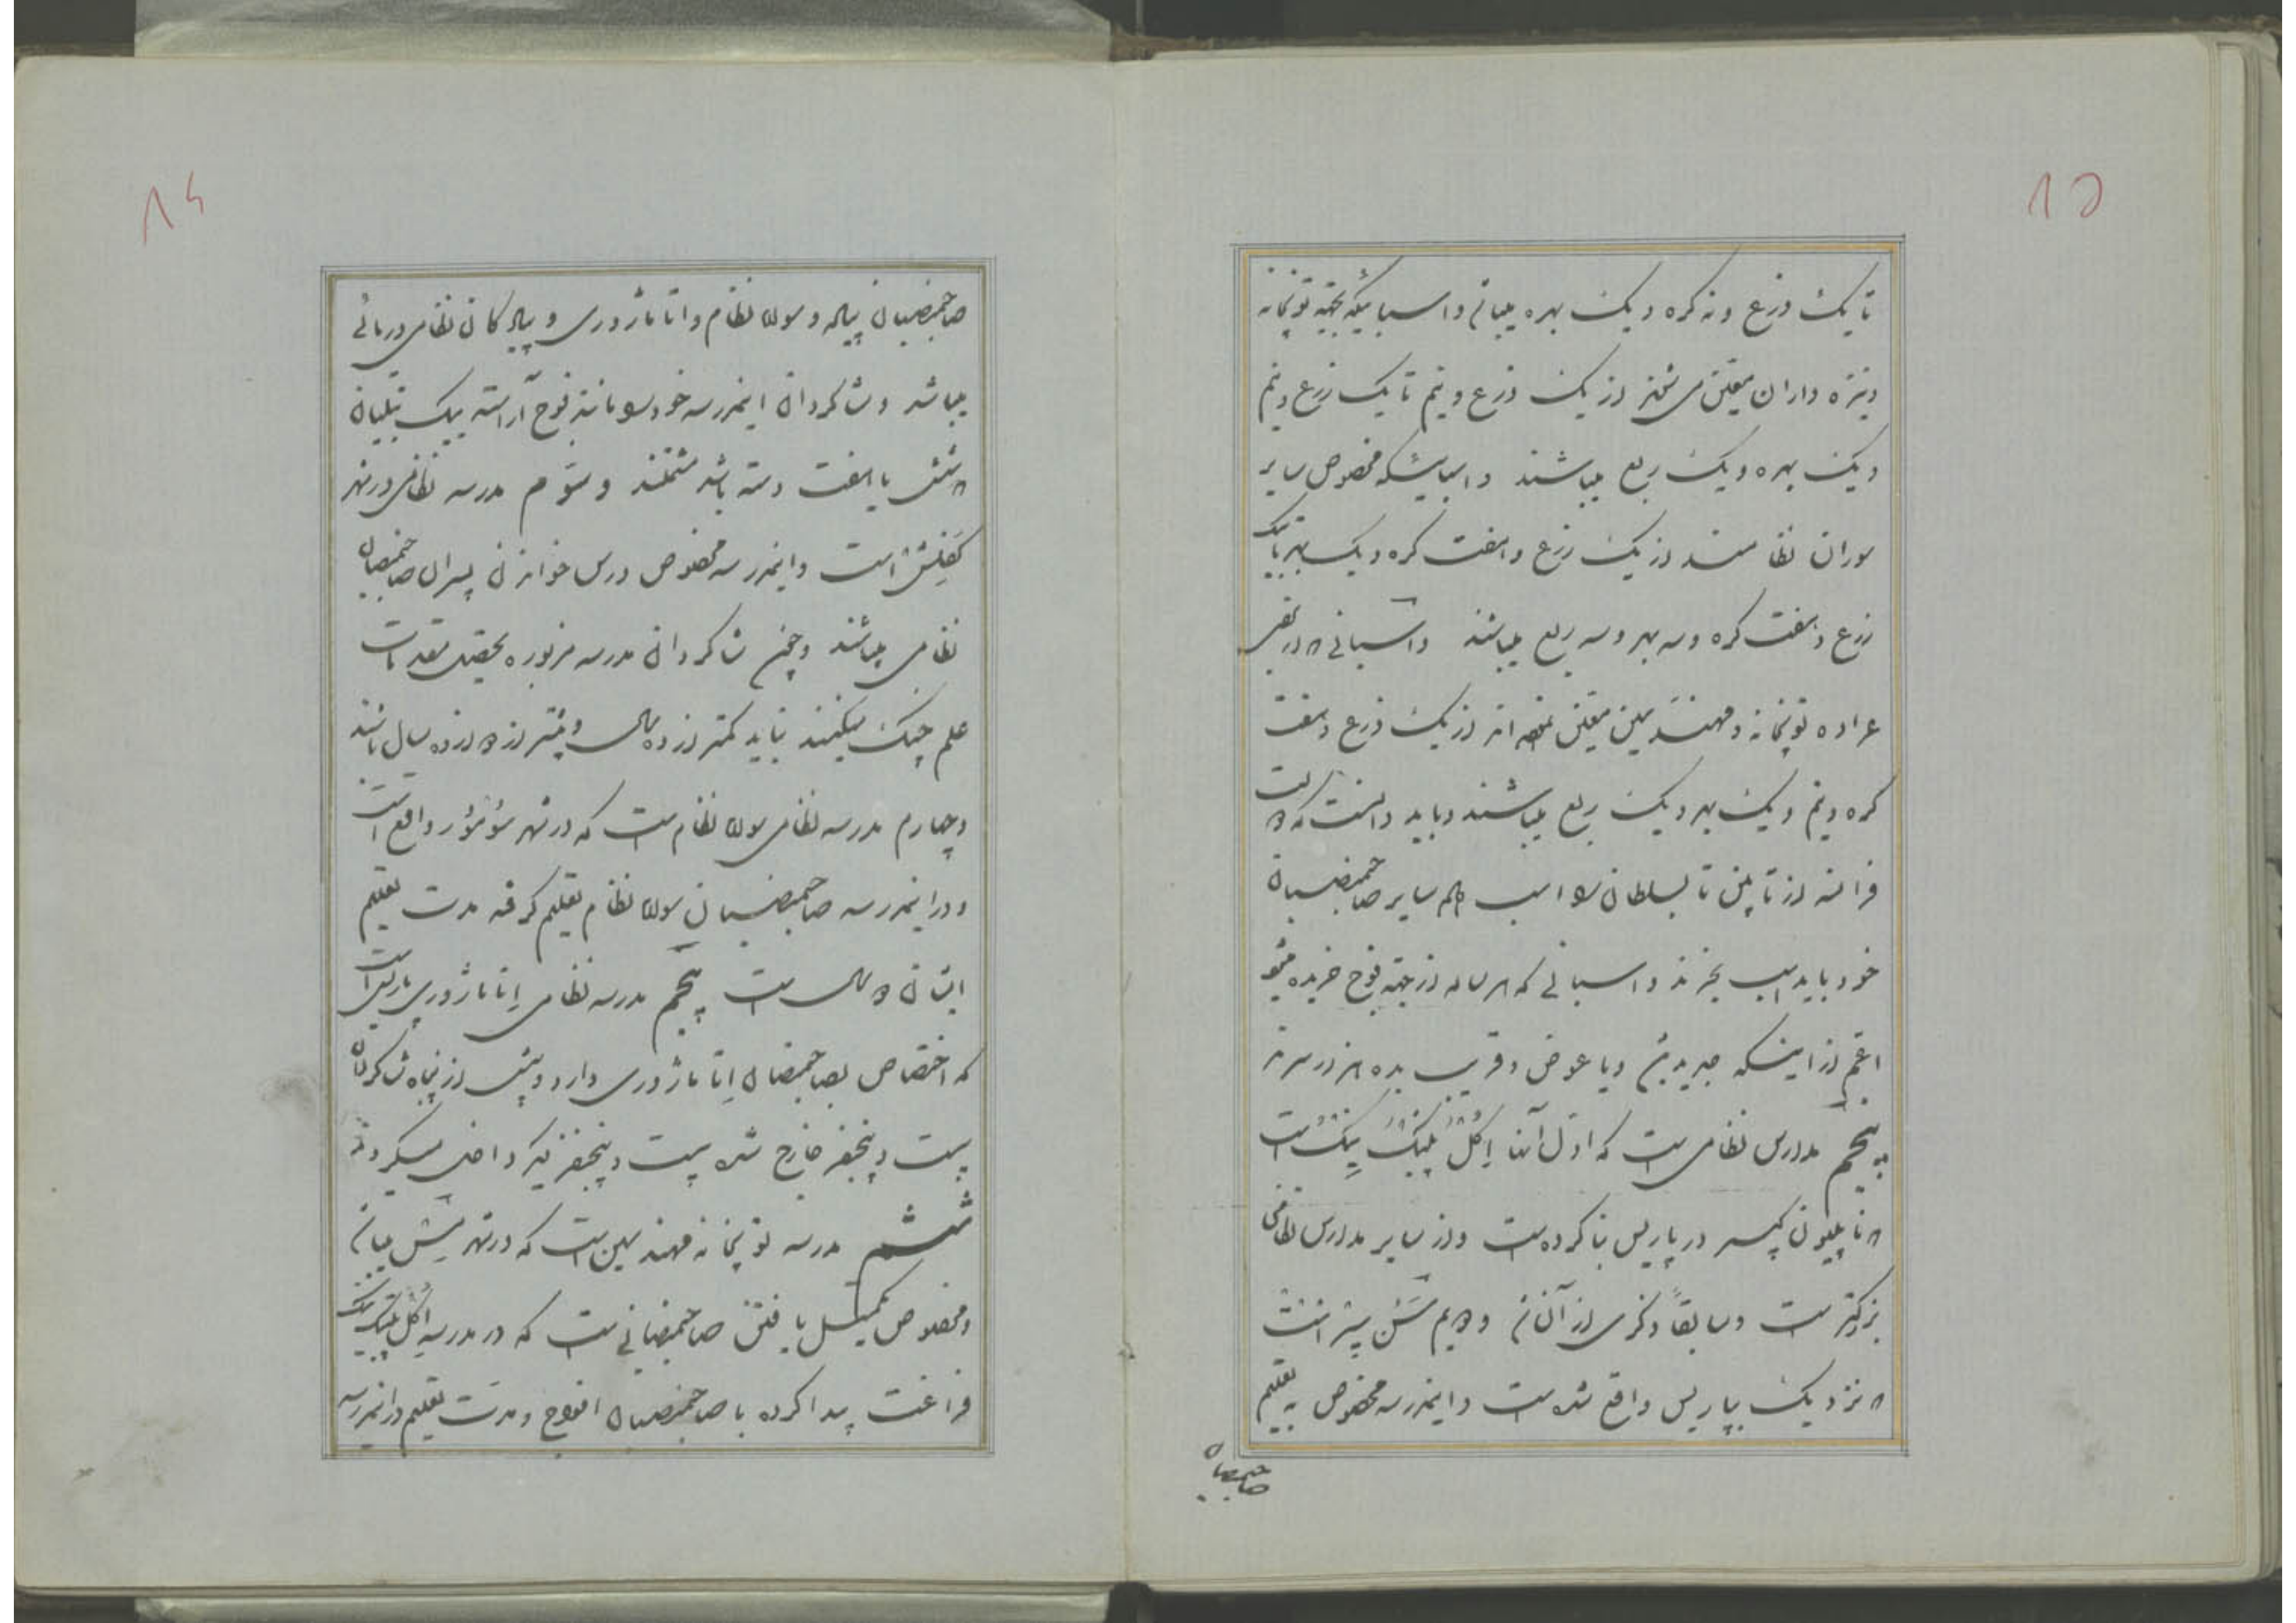 ۸۵
تا یک ذرع و نه کره و یک بهره میباشد و اسبهائیکه بجهة توپخانه
و نیزه داران معین می‌شوند از یک ذرع و نیم تا یک ذرع و نیم
و یک بهره و یک ربع میباشند و اسبهائیکه مخصوص سایر
سواران نظامند از یک ذرع و هفت کره و یک بهر تا یک
ذرع و هفت کره و سه بهر و سه ربع میباشند و اسبانی که در
عراده توپخانه و مهندسین معین شده‌اند از یک ذرع و هفت
کره و نیم و یک بهر و یک ربع میباشند و باید دانست که در دولت
فرانسه از تابین تا سلطان را اسب داده سایر صاحبمنصبان
خود باید اسب بخرند و اسبانی که هر ساله از جهة فوج خریده میشود
اعم از اینکه جدید و یا عوض و قریب بده هزار سرند
پنجم مدارس نظامی است که اول آنها اکل پلیتکنیک است
که ناپلیون کبیر در پاریس بنا کرده است و از سایر مدارس نظامی
بزرگتر است و سابقاً ذکری از آن شد و دویم سن سیر است
که نزدیک بپاریس واقع شده است و اینمدرسه مخصوص به تعلیم
صاحبمنصبان
۸۶
صاحبمنصبان پیاده و سواره نظام و اتاماژوری و پیادگان نظامی دریائی
میباشد و شاگردان اینمدرسه خود را مانند فوج آراسته بیک بتلیان
که شش یا هفت دسته باشد مشتملند و سوم مدرسه نظامی در شهر
لفلش است و اینمدرسه مخصوص درس خواندن پسران صاحبمنصبان
نظامی میباشند و چون شاگردان مدرسه مزبوره تحصیل مقدمات
علم جنگ میکنند نباید کمتر از ده سال و بیشتر از دوازده سال باشند
و چهارم مدرسه نظامی سواره نظام است که در شهر سومور واقع است
و در اینمدرسه صاحبمنصبان سواره نظام تعلیم گرفته مدت تعلیم
ایشان دو سال است پنجم مدرسه نظامی اتاماژوری پاریس است
که اختصاص بصاحبمنصبان اتاماژوری دارد و بیش از پنجاه شاگرد
بیست و پنجنفر خارج شده بیست و پنجنفر دیگر داخل میگردند
ششم مدرسه توپخانه و مهندسین است که در شهر متس میباشد
و مخصوص تکمیل یافتن صاحبمنصبانی است که در مدرسه اکل پلیتکنیک
فراغت پیدا کرده با صاحبمنصبان افواج و مدت تعلیم در اینمدرسه